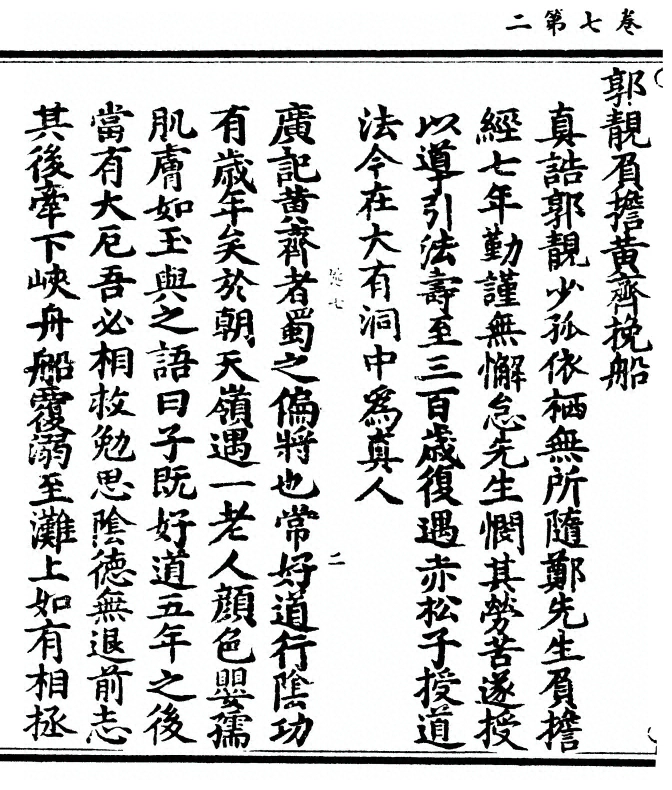 卷七第二
郭靚負擔黃齊挽船
真誥郭靚少孤依栖無所隨鄭先生負擔
經七年勤謹無懈怠先生憫其勞苦遂授
以導引法壽至三百歲復遇赤松子授道
法今在大有洞中為真人
卷七
二
廣記黃齊者蜀之偏將也常好道行陰功
有歲年矣於朝天嶺遇一老人顏色嬰孺
肌膚如玉與之語曰子既好道五年之後
當有大厄吾必相救勉思陰德無退前志
其後牽下峽舟船覆溺至灘上如有相拯